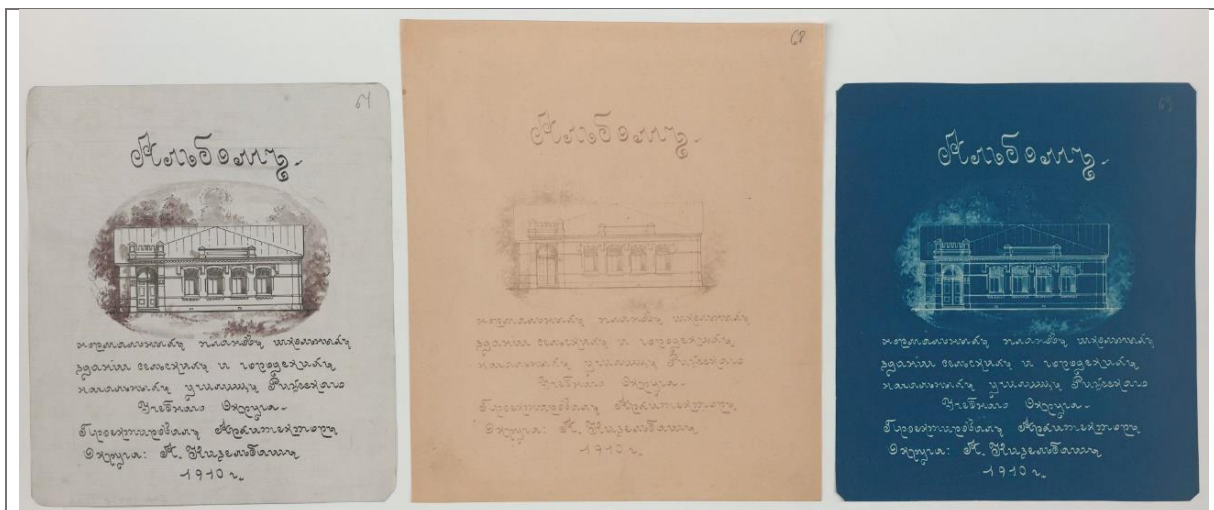 67
Альбомъ.
нормальныхъ плановъ школьныхъ
зданій сельскихъ и городскихъ
начальныхъ училищъ Рижскаго
Учебнаго Округа.
Проектировалъ Архитекторъ
Округа: А. Кизельбашъ
1910 г.
68
Альбомъ.
нормальныхъ плановъ школьныхъ
зданій сельскихъ и городскихъ
начальныхъ училищъ Рижскаго
Учебнаго Округа.
Проектировалъ Архитекторъ
Округа: А. Кизельбашъ
1910 г.
69
Альбомъ.
нормальныхъ плановъ школьныхъ
зданій сельскихъ и городскихъ
начальныхъ училищъ Рижскаго
Учебнаго Округа.
Проектировалъ Архитекторъ
Округа: А. Кизельбашъ
1910 г.